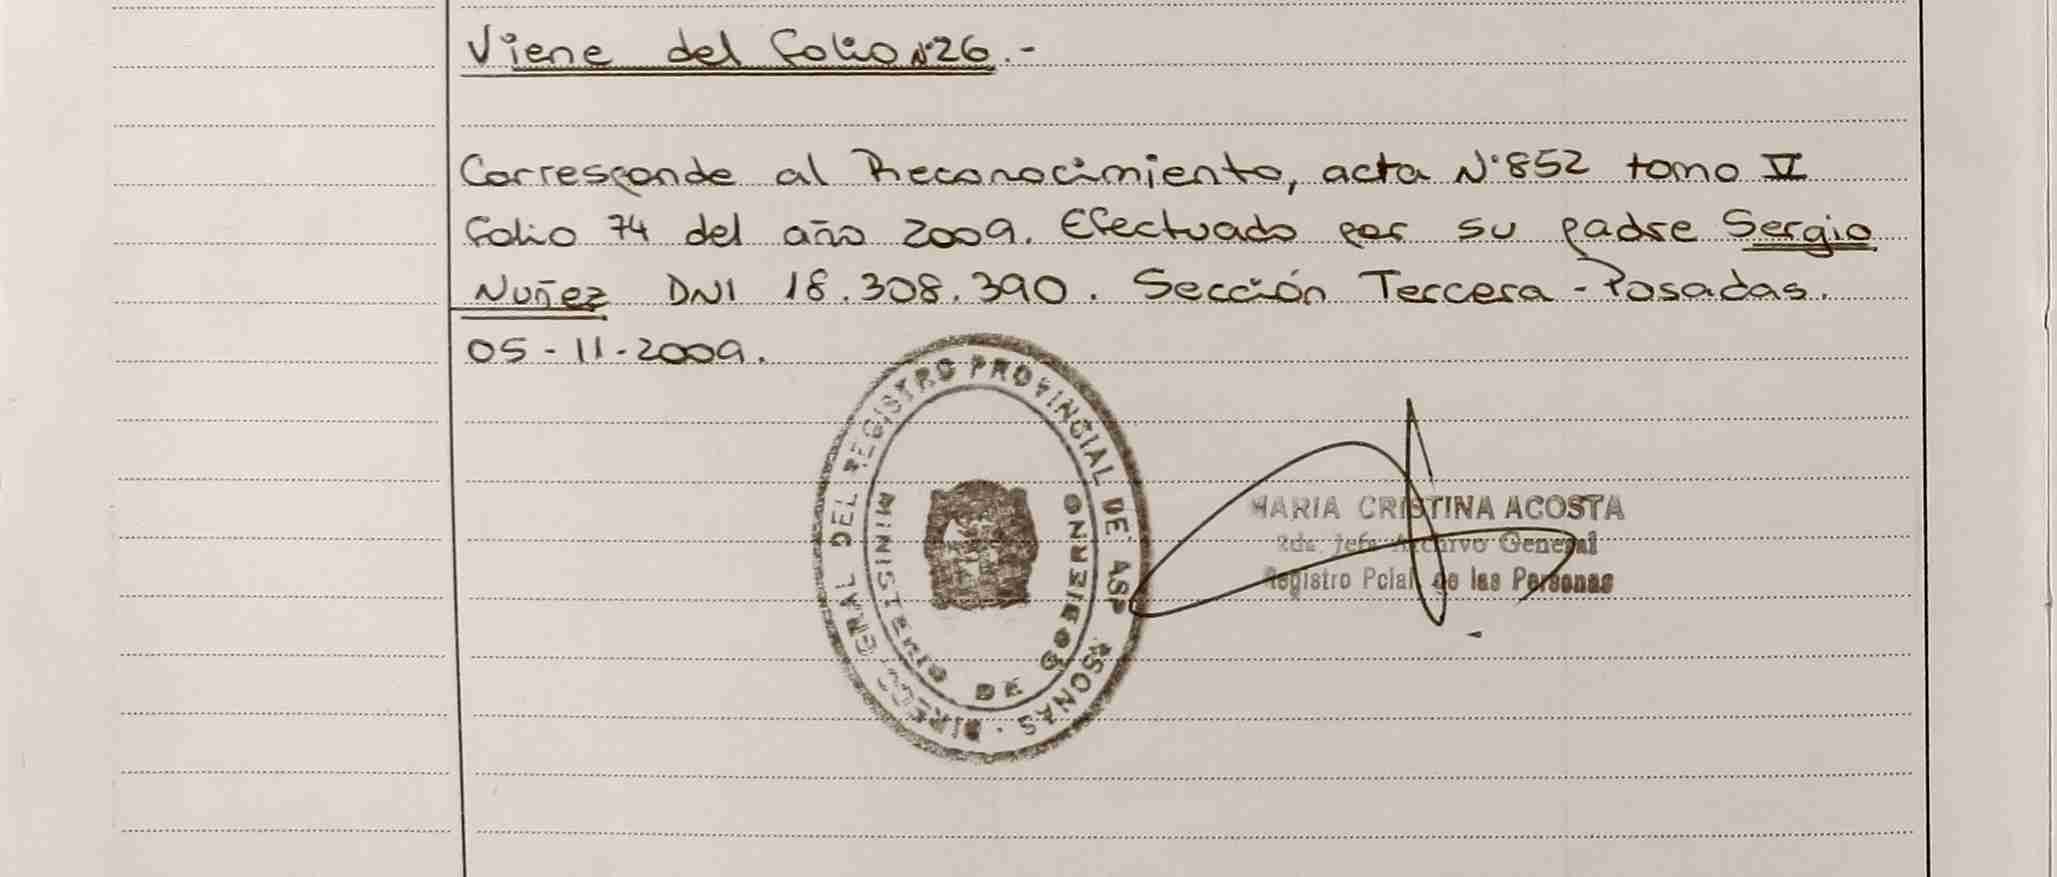 Viene del folio N°26.-
Corresponde al Reconocimiento, acta N°852 tomo V
folio 74 del año 2009. Efectuado por su padre Sergio
Nuñez DNI 18.308.390. Sección Tercera - Posadas.
05-11-2009.
DEL REGISTRO PROVINCIAL DE
MINISTERIO DE GOBIERNO
MARIA CRISTINA ACOSTA
2da. Jefa Archivo General
Registro Pcial de las Personas